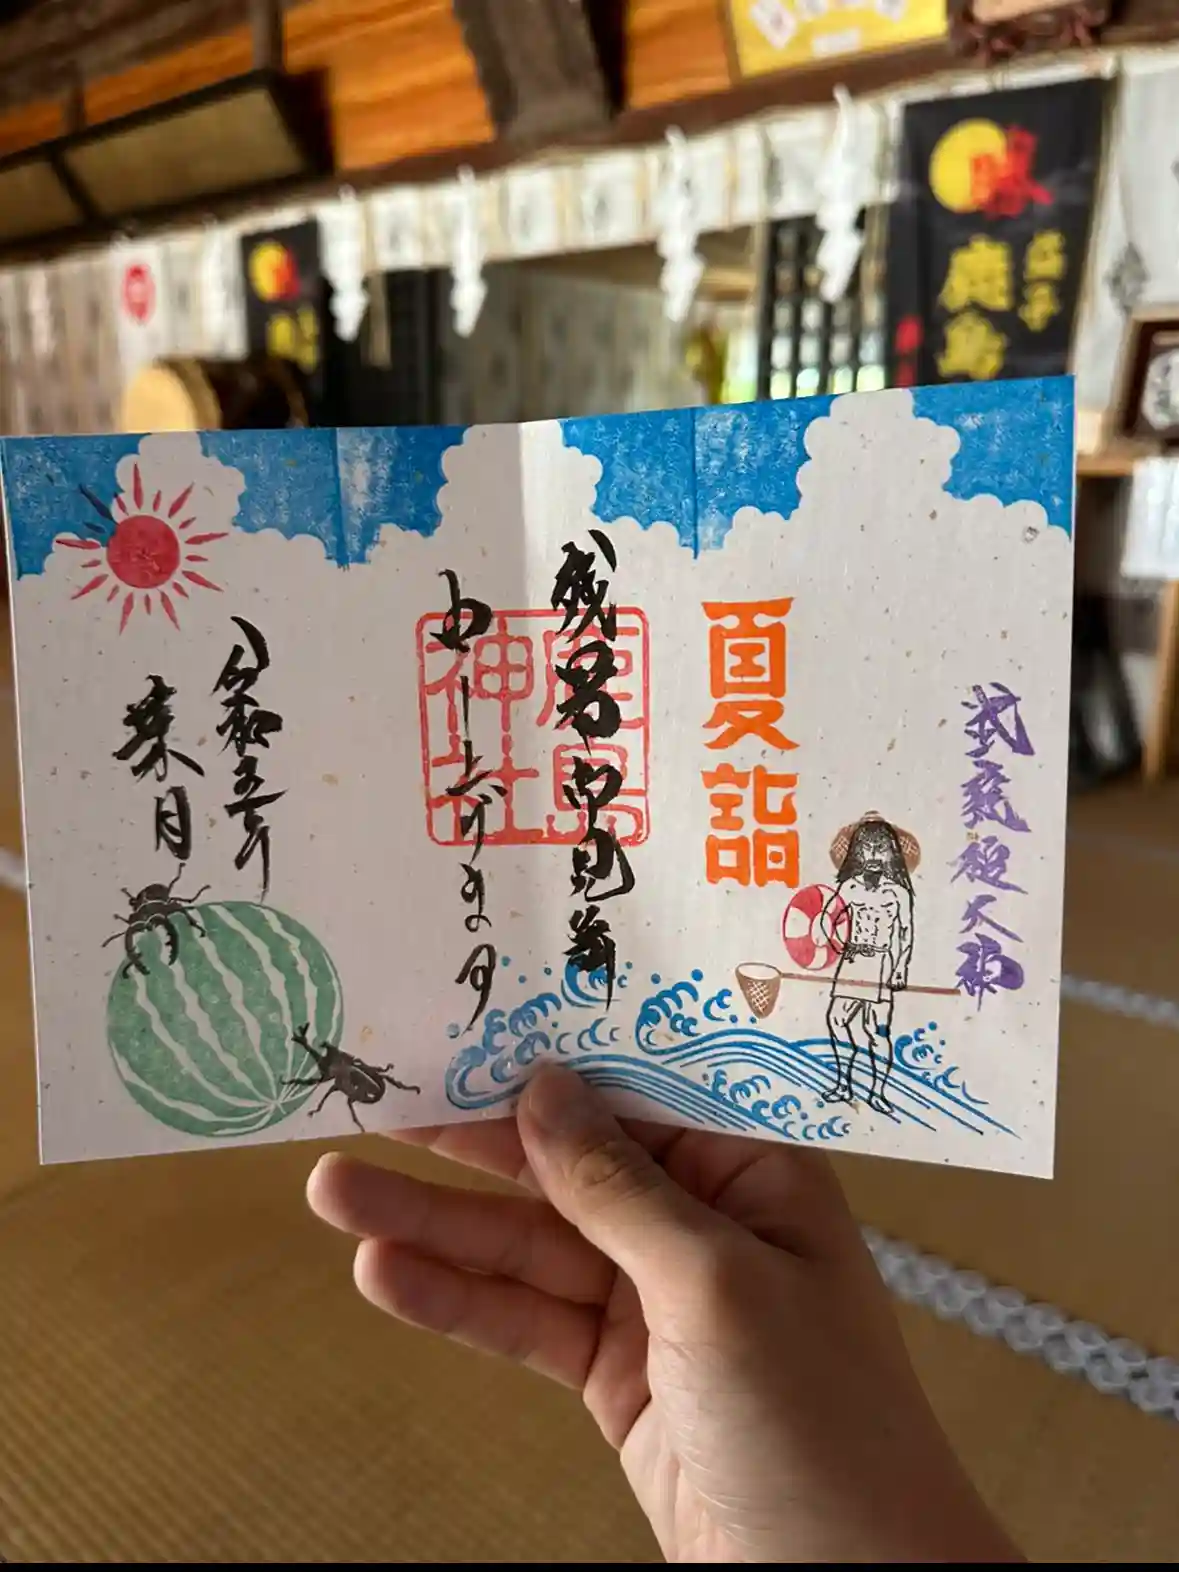 勝
鹿島
武甕槌大神
夏詣
残暑御見舞
申し上げます
鹿島神社
令和五年
葉月